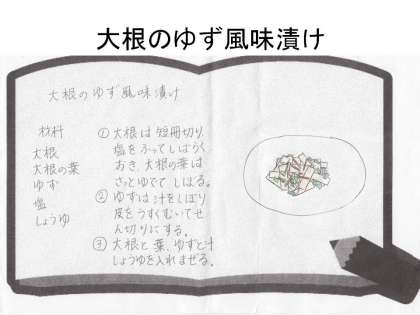 大根のゆず風味漬け
大根のゆず風味漬け
材料
大根
大根の葉
ゆず
塩
しょうゆ
① 大根は短冊切り
塩をふってしばらく
おき、大根の葉は
さっとゆでてしぼる。
② ゆずは汁をしぼり
皮をうすくむいてせ
ん切りにする。
③ 大根と葉、ゆずと汁
しょうゆを入れまぜる。